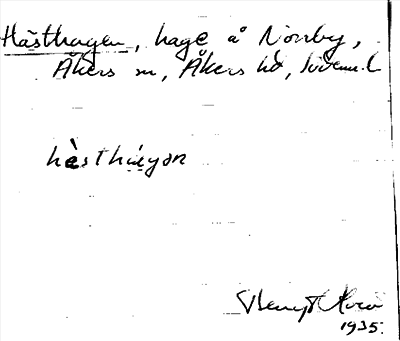 Hästhagen, hage å Norrby,
Åkers sn, Åkers hd, Söderml.
hèsthàgən
Bengt
1935.